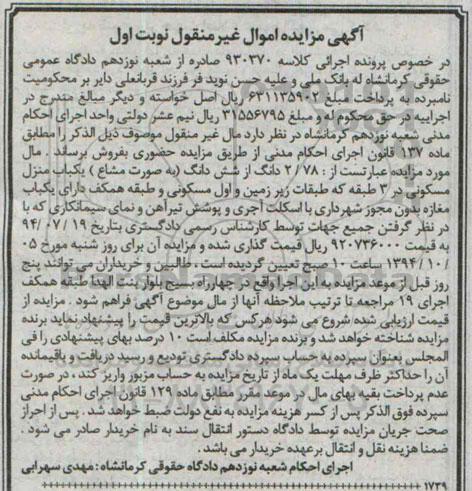 آگهی مزایده اموال غیر منقول نوبت اول
در خصوص پرونده اجرائی کلاسه ۹۳۰۳۷۰ صادره از شعبه نوزدهم دادگاه عمومی
حقوقی کرمانشاه له بانک ملی و علیه حسن نوید فر فرزند قربانعلی دایر بر محکومیت
نامبرده به پرداخت مبلغ ۶۳۱۱۳۵۹۰۲ ریال اصل خواسته و دیگر مبالغ مندرج در
اجراییه در حق محکوم له و مبلغ ۳۱۵۵۶۷۹۵ ریال نیم عشر دولتی واحد اجرای احکام
مدنی شعبه نوزدهم کرمانشاه در نظر دارد مال غیر منقول موصوف ذیل الذکر را مطابق
ماده ۱۳۷ قانون اجرای احکام مدنی از طریق مزایده حضوری بفروش برساند . مال
مورد مزایده عبارتست از : ۲/۷۸ دانگ از شش دانگ (به صورت مشاع ) یکباب منزل
مسکونی در ۳ طبقه که طبقات زیر زمین و اول مسکونی و طبقه همکف دارای یکباب
مغازه بدون مجوز شهرداری با اسکلت آجری و پوشش تیرآهن و نمای سیمانکاری که با
در نظر گرفتن جمیع جهات توسط کارشناس رسمی دادگستری بتاریخ ۹۴/۰۷/۱۹
به قیمت ۹۲۰۷۳۶۰۰۰ ریال قیمت گذاری شده و مزایده آن برای روز شنبه مورخ ۰۵
/۱۳۹۴/۱۰ ساعت ۱۰ صبح تعیین گردیده است . طالبین و خریداران می توانند پنج
روز قبل از موعد مزایده به این اجرا واقع در چهارراه بسیج بلوار بنت الهدا طبقه همکف
اجرای ۱۹ مراجعه تا ترتیب ملاحظه آنها از مال موضوع آگهی فراهم شود . مزایده از
قیمت ارزیابی شده شروع می شود هرکس که بالاترین قیمت را پیشنهاد نماید برنده
مزایده شناخته خواهد شد و برنده مزایده مکلف است ۱۰ درصد بهای پیشنهادی را فی
المجلس بعنوان سپرده به حساب سپرده دادگستری تودیع و رسید دریافت و باقیمانده
آن را حداکثر ظرف مهلت یک ماه از تاریخ مزایده به حساب مزبور واریز کند . در صورت
عدم پرداخت بقیه بهای مال در موعد مقرر مطابق ماده ۱۲۹ قانون اجرای احکام مدنی
سپرده فوق الذکر پس از کسر هزینه مزایده به نفع دولت ضبط خواهد شد . پس از احراز
صحت جریان مزایده توسط دادگاه دستور انتقال سند به نام خریدار صادر می شود .
ضمنا هزینه نقل و انتقال برعهده خریدار می باشد .
اجرای احکام شعبه نوزدهم دادگاه حقوقی کرمانشاه : مهدی سهرابی
۱۷۳۹